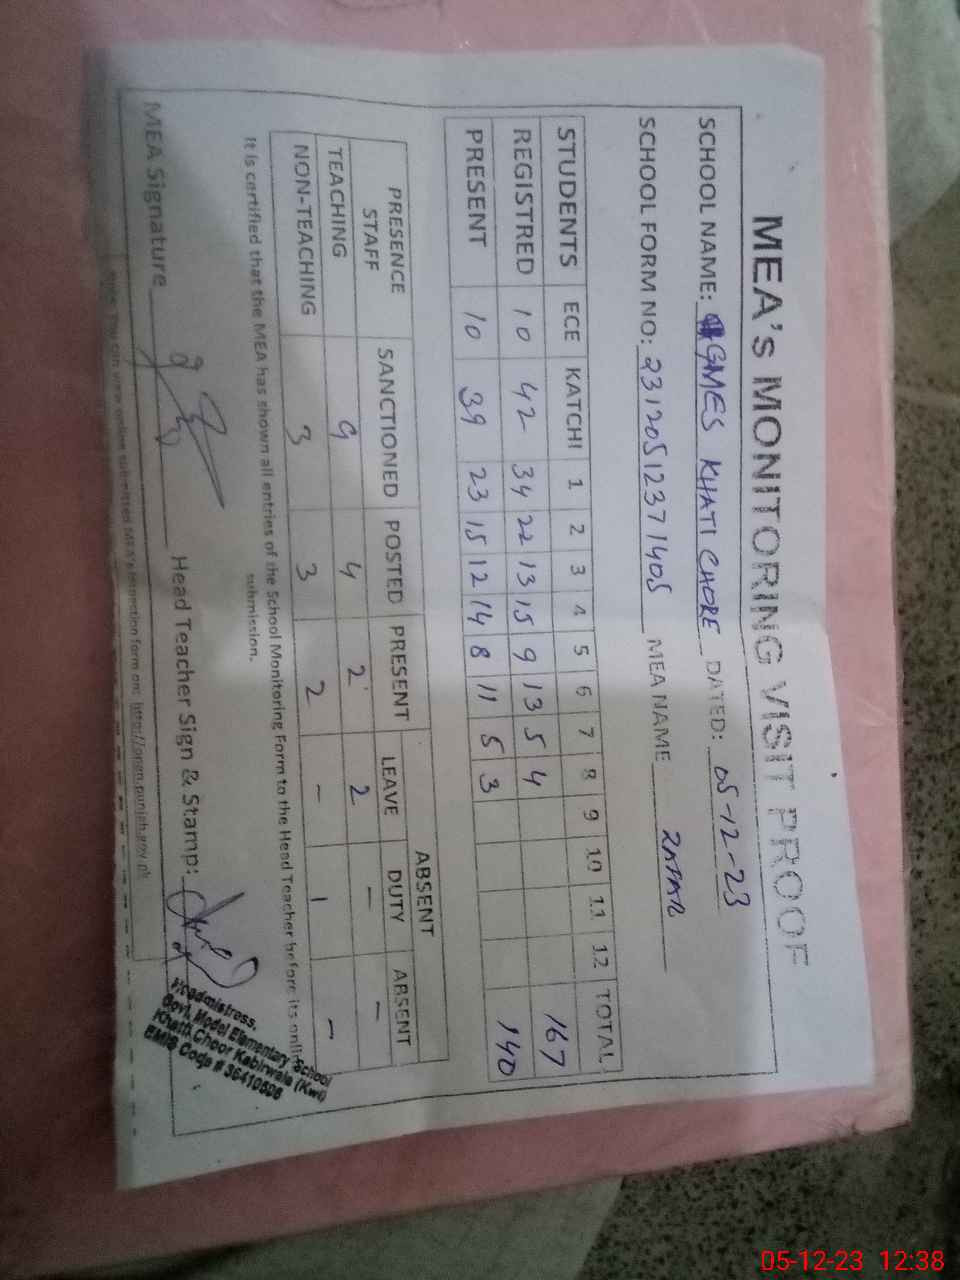 MEA's MONITORING VISIT PROOF
SCHOOL NAME: GMES KHATI CHORE DATED: 05-12-23
SCHOOL FORM NO: 23120512371405 MEA NAME ZAFAR
STUDENTS ECE KATCHI 1 2 3 4 5 6 7 8 9 10 11 12 TOTAL
REGISTRED 10 42 34 22 13 15 9 13 5 4 167
PRESENT 10 39 23 15 12 14 8 11 5 3 140
PRESENCE STAFF SANCTIONED POSTED PRESENT ABSENT
LEAVE DUTY ABSENT
TEACHING 9 4 2 2 - -
NON-TEACHING 3 3 2 - 1 -
It is certified that the MEA has shown all entries of the School Monitoring Form to the Head Teacher before its online
submission.
MEA Signature Head Teacher Sign & Stamp:
Headmistress,
Govt. Model Elementary School
Khatti Choor Kabirwala (Kwl)
EMIS Code # 36410606
You can view online submitted MEA's inspection form on: http://open.punjab.gov.pk
05-12-23 12:38